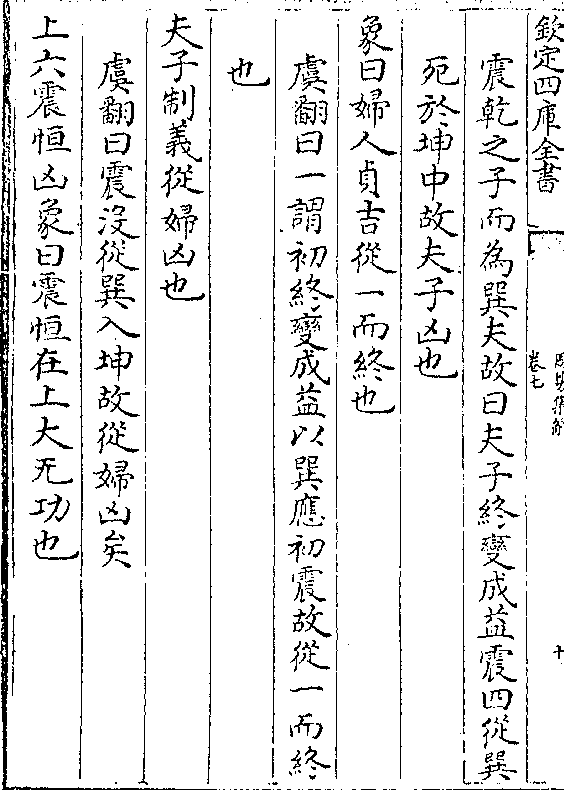 欽定四庫全書
周易集解
卷七
十
震乾之子而為巽夫故曰夫子終變成益震四從巽
死於坤中故夫子凶也
象曰婦人貞吉從一而終也
虞翻曰一謂初終變成益以巽應初震故從一而終
也
夫子制義從婦凶也
虞翻曰震沒從巽入坤故從婦凶矣
上六震恒凶象曰震恒在上大无功也